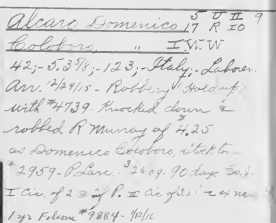 Alcaro Domenico 5 U II 9
17 R IO
Coloboro, " I. V. W
42,- 5.3 5/8,- 123,- Italy,- Laborer
Arr. 2/24/15 - Robbery Hold up
with #4739. Knocked down &
robbed R Murray of $4.25
as Domenico Coloboro, Stockton
#2959. P. Larc. 90 days
I Cir. of 2 P. II Cir of
1 yr Folsom #9884-